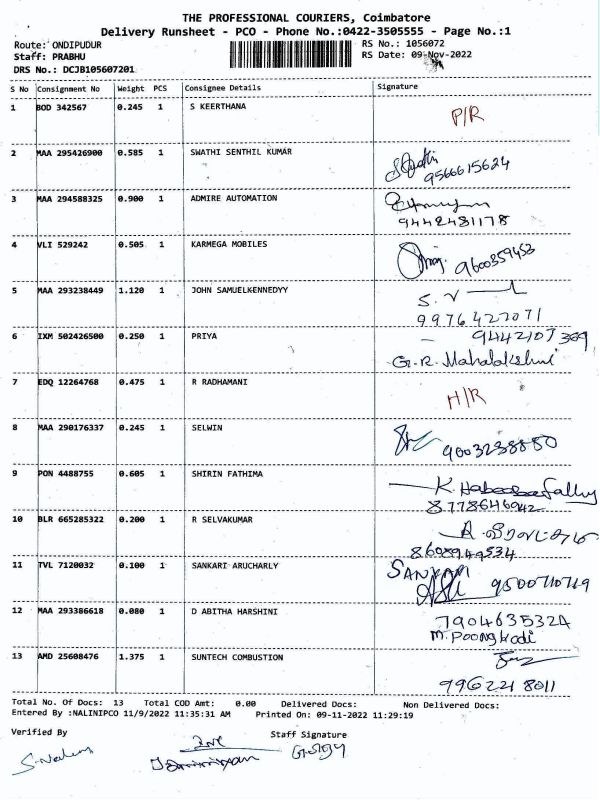 THE PROFESSIONAL COURIERS, Coimbatore
Delivery Runsheet - PCO - Phone No.:0422-3505555 - Page No.:1
Route: ONDIPUDUR RS No.: 1056072
Staff: PRABHU RS Date: 09-Nov-2022
DRS No.: DCJB105607201
S No Consignment No Weight PCS Consignee Details Signature
1 BOD 342567 0.245 1 S KEERTHANA
P/R
2 MAA 295426900 0.585 1 SWATHI SENTHIL KUMAR
Swathi
9566615624
3 MAA 294588325 0.900 1 ADMIRE AUTOMATION
9442431178
4 VLI 529242 0.505 1 KARMEGA MOBILES
9600359453
5 MAA 293238449 1.120 1 JOHN SAMUELKENNEDYY
S. V
9976427071
6 IXM 502426500 0.250 1 PRIYA
9442107369
G.R. Mahalakshmi
7 EDQ 12264768 0.475 1 R RADHAMANI
H/R
8 MAA 290176337 0.245 1 SELWIN
9003238880
9 PON 4488755 0.605 1 SHIRIN FATHIMA
K.
8778646942
10 BLR 665285322 0.200 1 R SELVAKUMAR
8608949534
11 TVL 7120032 0.100 1 SANKARI ARUCHARLY
SANKARI
9500710719
12 MAA 293386618 0.080 1 D ABITHA HARSHINI
7904635324
M.Poongkodi
13 AMD 25608476 1.375 1 SUNTECH COMBUSTION
9962218011
Total No. Of Docs: 13 Total COD Amt: 0.00 Delivered Docs: Non Delivered Docs:
Entered By :NALINIPCO 11/9/2022 11:35:31 AM Printed On: 09-11-2022 11:29:19
Verified By Staff Signature